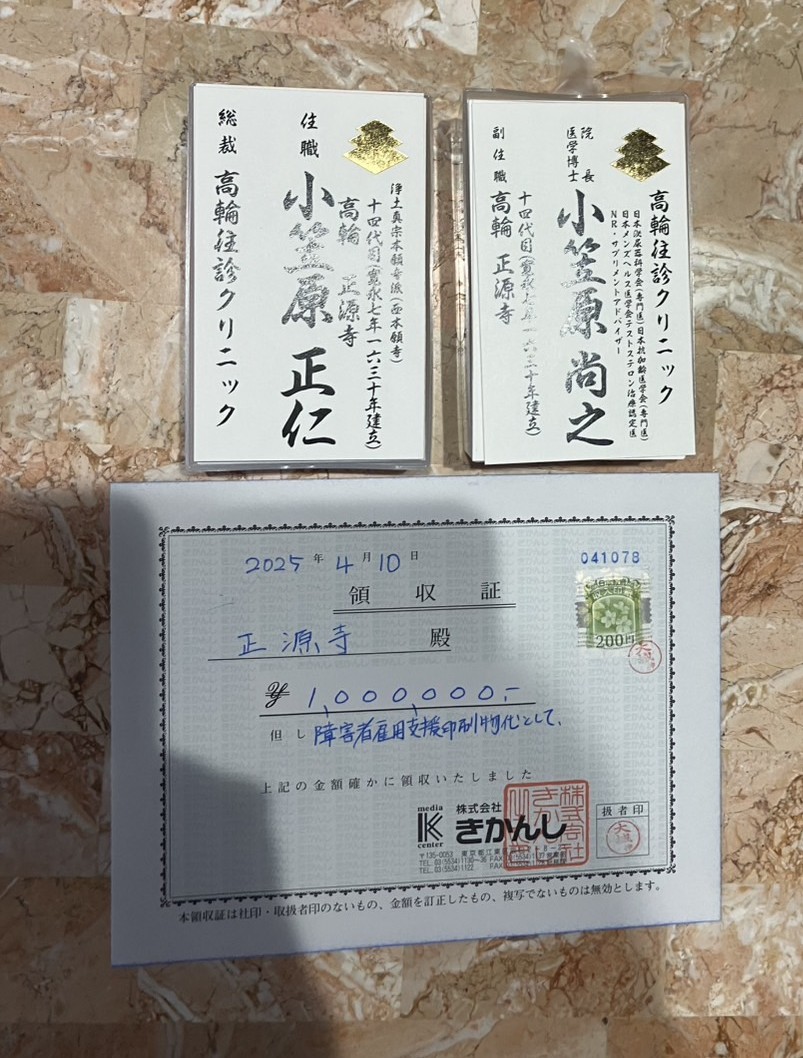 浄土真宗本願寺派(西本願寺)
十四代目(寛永七年一六三十年建立)
高輪 正源寺
住職
小笠原 正仁
総裁 高輪往診クリニック
高輪往診クリニック
日本泌尿器科学会(専門医)日本抗加齢医学会(専門医)
日本メンズヘルス医学会テストステロン治療認定医
NR・サプリメントアドバイザー
院長
医学博士
小笠原 尚之
十四代目(寛永七年一六三十年建立)
副住職 高輪 正源寺
2025年4月10日
041078
領収証
200円
正源寺 殿
¥1,000,000.-
但し 障害者雇用支援印刷物代として、
上記の金額確かに領収いたしました
media
K
center
株式会社
きかんし
扱者印
〒135-0053 東京都江東
TEL.03(5534)1122
本領収証は社印・取扱者印のないもの、金額を訂正したもの、複写でないものは無効とします。